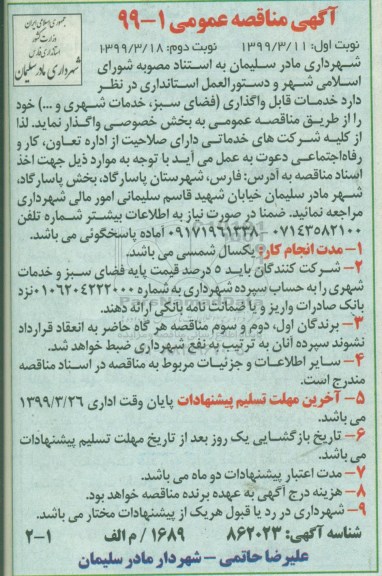 آگهی مناقصه عمومی ۱-۹۹
جمهوری اسلامی ایران
وزارت کشور
استانداری فارس
شهرداری مادر سلیمان
نوبت اول: ۱۳۹۹/۳/۱۱ نوبت دوم: ۱۳۹۹/۳/۱۸
شهرداری مادر سلیمان به استناد مصوبه شورای
اسلامی شهر و دستورالعمل استانداری در نظر
دارد خدمات قابل واگذاری (فضای سبز، خدمات شهری و ...) خود
را از طریق مناقصه عمومی به بخش خصوصی واگذار نماید. لذا
از کلیه شرکت های خدماتی دارای صلاحیت از اداره تعاون، کار و
رفاه اجتماعی دعوت به عمل می آید با توجه به موارد ذیل جهت اخذ
اسناد مناقصه به آدرس: فارس، شهرستان پاسارگاد، بخش پاسارگاد،
شهر مادر سلیمان خیابان شهید قاسم سلیمانی امور مالی شهرداری
مراجعه نمایید. ضمنا در صورت نیاز به اطلاعات بیشتر شماره تلفن
۰۷۱۴۳۵۸۲۱۰۰ - ۰۹۱۷۱۹۶۱۲۳۸ آماده پاسخگوئی می باشد.
۱- مدت انجام کار: یکسال شمسی می باشد.
۲- شرکت کنندگان باید ۵ درصد قیمت پایه فضای سبز و خدمات
شهری را به حساب سپرده شهرداری به شماره ۰۱۰۶۲۰۴۲۲۲۰۰۰ نزد
بانک صادرات واریز و یا ضمانت نامه بانکی ارائه دهند.
۳- برندگان اول، دوم و سوم مناقصه هر گاه حاضر به انعقاد قرارداد
نشوند سپرده آنان به ترتیب به نفع شهرداری ضبط خواهد شد.
۴- سایر اطلاعات و جزئیات مربوط به مناقصه در اسناد مناقصه
مندرج است.
۵- آخرین مهلت تسلیم پیشنهادات پایان وقت اداری ۱۳۹۹/۳/۲۶
می باشد.
۶- تاریخ بازگشایی یک روز بعد از تاریخ مهلت تسلیم پیشنهادات
می باشد.
۷- مدت اعتبار پیشنهادات دو ماه می باشد.
۸- هزینه درج آگهی به عهده برنده مناقصه خواهد بود.
۹- شهرداری در رد یا قبول هریک از پیشنهادات مختار می باشد.
شناسه آگهی: ۸۶۲۰۲۳ ۱۶۸۹ / م الف ۱-۲
علیرضا حاتمی - شهردار مادر سلیمان